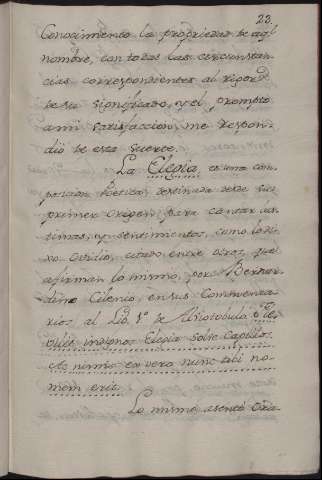 23.
Conocimiento la propriedad de aql
nombre, con todas las circunstan-
cias correspondientes al rigor
de su significado, y el prompto
a mi satisfaccion, me respon-
dió de esta suerte.
La Elegia, es una com-
posicion Poetica, destinada desde su
primer origen, para cantar las-
timas, y sentimientos, como lo di-
xo Ovidio, citado entre otros, que
afirman lo mismo, por Bernar-
dino Cilenio, en sus Commenta-
rios al Lib. 1º de Tibulo
indignos Elegia solve Capillos.
Ac nimis ex vero nunc tibi no-
men erit.
Lo mismo asentó Ora-